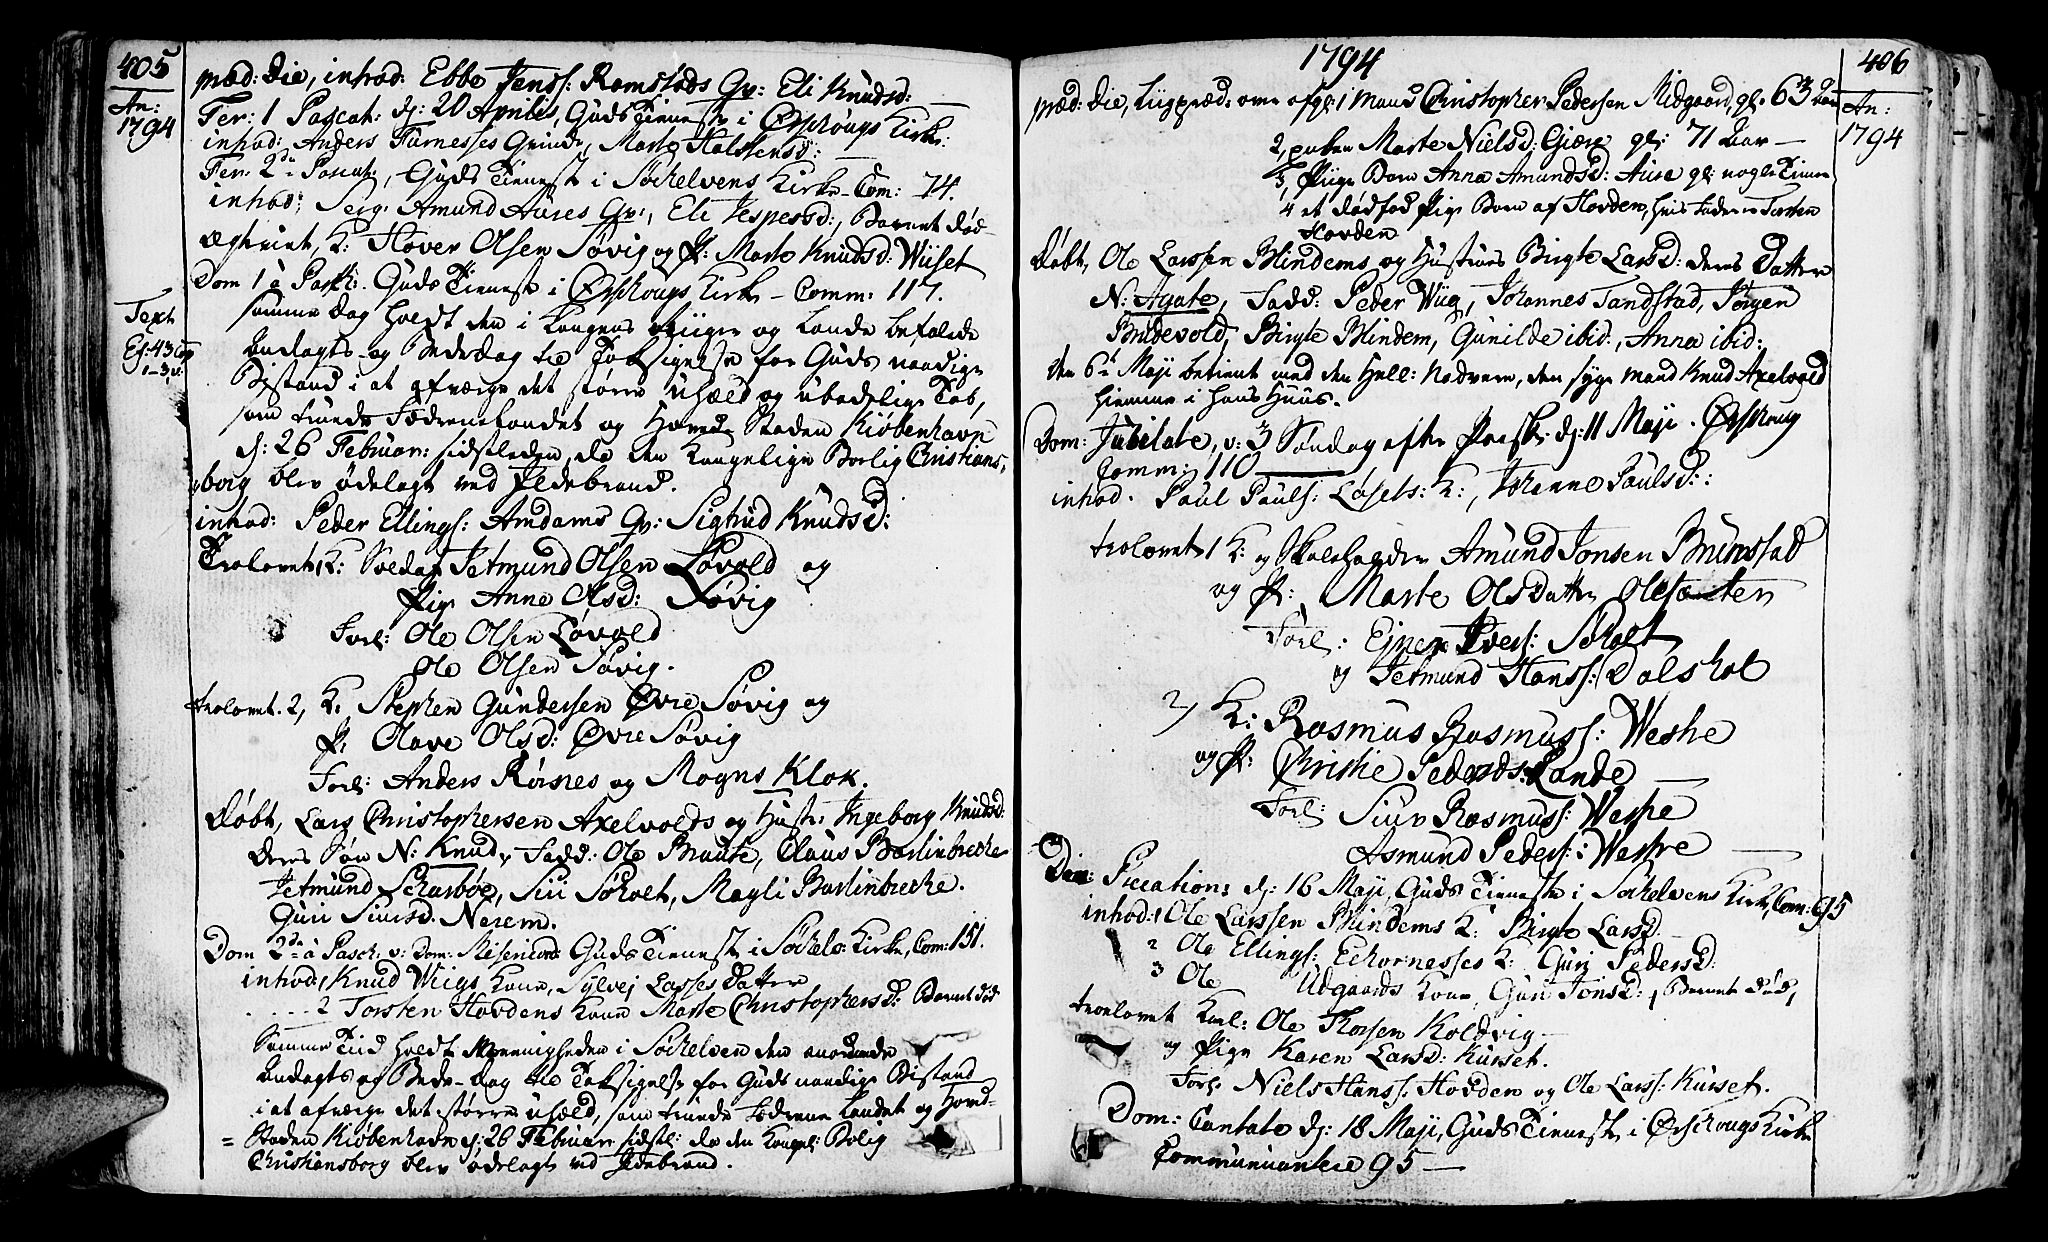 405
An:
1794
mæd: die, introd: Ebbe Jenss: Ramstads Qv: Eli Knudsd:
Fer: 1 Pascat: d: 20 Aprilis, Guds Tieneste i Ørschougs Kirke:
introd: Anders Farnesses Qvinde, Marte Halstensd:
Fer: 2da Pascat:, Guds Tieneste i Søchelvens Kirke – Com: 74.
introd: Serg: Amund Aures Qv:, Eli Jespersd:, Barnet død –
Ægteviet, K: Hover Olsen Søvig og P: Marte Knudsd: Wiiset
Dom 1 a Pasch: Guds Tieneste i Ørschougs Kirke – Comm: 117.
Text
Es: 43 Cap
1–3 v.
samme Dag holdt den i Kongens Riiger og Lande befalede
Andagts- og Bededag til Taksigelse for Guds naadige
Bistand i at afværge det større Uheld og ubodelige Tab,
som truede Fædrenelandet og Hoved Staden Kiøbenhavn
d: 26 Februar: sidstleden, da den Kongelige Bolig Christians-
borg blev ødelagt ved Ildebrand.
introd: Peder Ellings: Amdams Qv: Sigtrud Knudsd:
Trolovet 1, K: Soldat Jetmund Olsen Løvold og
Pige Anne Olsd: Søvig
Forl: Ole Olsen Løvold
Ole Olsen Søvig.
trolovet. 2, K. Stephen Gundersen Øvre Søvig og
P. Olave Olsd: Øvre Søvig
Forl: Anders Røisnes og Mogns Klok.
Døbt, Lars Christophersen Axelvolds og Hustr: Ingeborg Knudsd:
deres Søn N: Knud, Fadd: Ole Braute, Claus Barlinbrecke
Jetmund Scharbøe, Siri Søholt, Magli Barlinbrecke.
Guri Siursd. Nerem.
Dom 2da a Pasch: v: Dom: Misericord: Guds Tieneste i Søchelv: Kirke, Com: 151.
introd: 1 Knud Wiigs Kone, Sylvej Lasses Datter
2 Torsten Hovdens Kone Marte Christophersd: Barnet død
Samme Tiid holdt Menigheden i Søchelven den anordnede
Andagts og Bede-Dag til Taksigelse for Guds naadige Bistand
i at afværge det større Uheld, som truede Fædrene Landet og Hoved-
= Staden Kiøbenhavn d: 26 Februar sidstl: da den Kongel: Bolig
Christiansborg blev ødelagt ved Ildebrand.
1794
406
An:
1794
mæd: die, Liigpræd: over afg: 1 Mand Christopher Pedersen Midgaard, gl: 63 Aar
2, Marte Nielsd: Giære gl: 71 Aar –
3, Pige Barn Anna Amundsd: Aure gl: nogle Timer
4 et dødfød Pige Barn af Hovden, hvis Fader er Torsten
Hovden
Døbt, Ole Larssen Blindems og Hustrues Birgte Larsd: deres Datter
N: Agate, Fadd: Peder Wiig, Johannes Tandstad, Jørgen
Brudevold, Birgte Blindem, Gunilde ibid:, Anna ibid:
den 6te Maji betient med den Hell: Nadvere, den syge Mand Knud Axelvold
hiemme i hans Huus.
Dom: Jubilate, v: 3 Søndag efter Paaske d: 11 Maji. Ørschoug
Comm: 110
introd. Paul Pauls: Løsets: K:, Johanne Paulsd::
trolovet 1 K: og Skoleholder Amund Jonsen Brunstad
og P: Marte Olsdatter
Forl: Ejner Ivers: Søholt
og Jetmund Hanss: Dalshol
2, K: Rasmus Rasmuss: Weshe
og P: Christie Pedersd: Lande
Forl: Siur Rasmuss: Weshe
Asmund Peders: Westre
Die: Precation: d: 16 Maji, Guds Tieneste i Søchelvens Kirke, Com: 95
introd: 1 Ole Larssen Blindems K: Birgte Larsd.
2 Ole Ellings: Echornesses K: Guri Pedersd:
3 Ole Udgaards Kone, Guri Jonsd:, Barnet død,
troelovet Karl: Ole Thorsen Koldvig –
og Pige Karen Larsd: Kurset.
Forl: Niels Hanss: Hovden og Ole Larss: Kurset.
Dom: Cantate d: 18 Maji, Guds Tieneste i Ørschougs Kirke
Communicantere 95 –